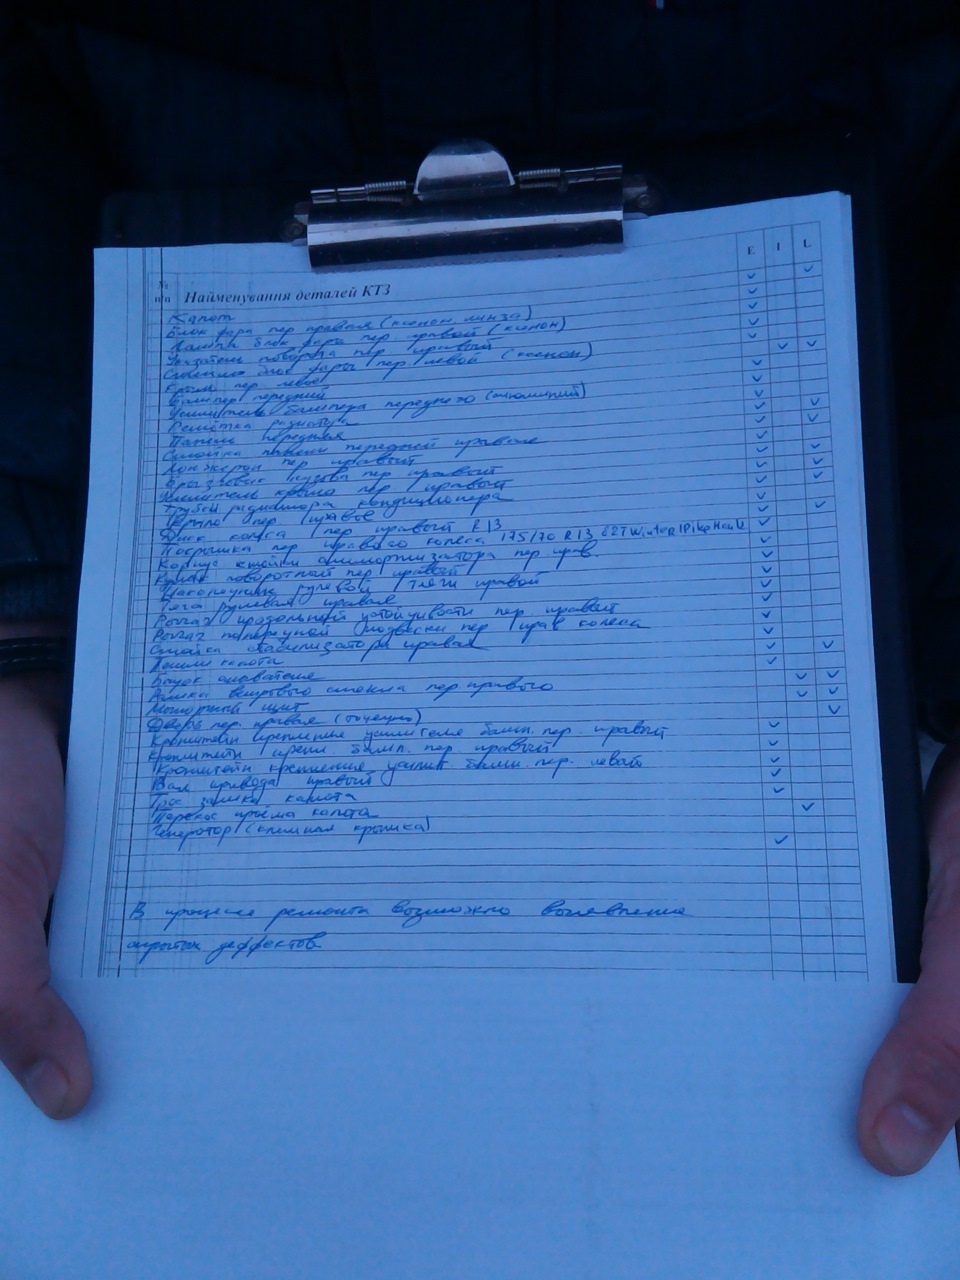 № п/п Найменування деталей КТЗ E I L
Капот
Блок фара пер правая (ксенон линза)
Лампа блок фары пер правой (ксенон)
Указатель поворота пер правый
Стекло блок фары пер левой (ксенон)
Крыло пер левое
Бампер передний
Усилитель бампера переднего (алюминий)
Решётка радиатора
Панель передняя
Стойка панели передней правая
Лонжерон пер правый
Брызговик кузова пер правый
Усилитель крыла пер правый
Трубки радиатора кондиционера
Крыло пер. правое
Диск колеса пер правый R13
Покрышка пер правого колеса 175/70 R13
Корпус стойки амортизатора пер. прав.
Кулак поворотный пер правый
Наконечник рулевой тяги правой
Тяга рулевая правая
Рычаг продольной устойчивости пер. правый
Рычаг поперечной подвески пер прав колеса
Стойка стабилизатора правая
Петли капота
Бачок омывателя
Рамка ветрового стекла пер правого
Моторный щит
Дверь пер. правая
Кронштейн крепления усилителя бамп. пер. правый
Кронштейн крепл бамп. пер. правый
Кронштейн крепления усилит. бамп. пер. левый
Вал привода правый
Трос замка капота
Перекос проёма капота
Генератор (клемная крышка)
В процессе ремонта возможно выявление
скрытых деффектов